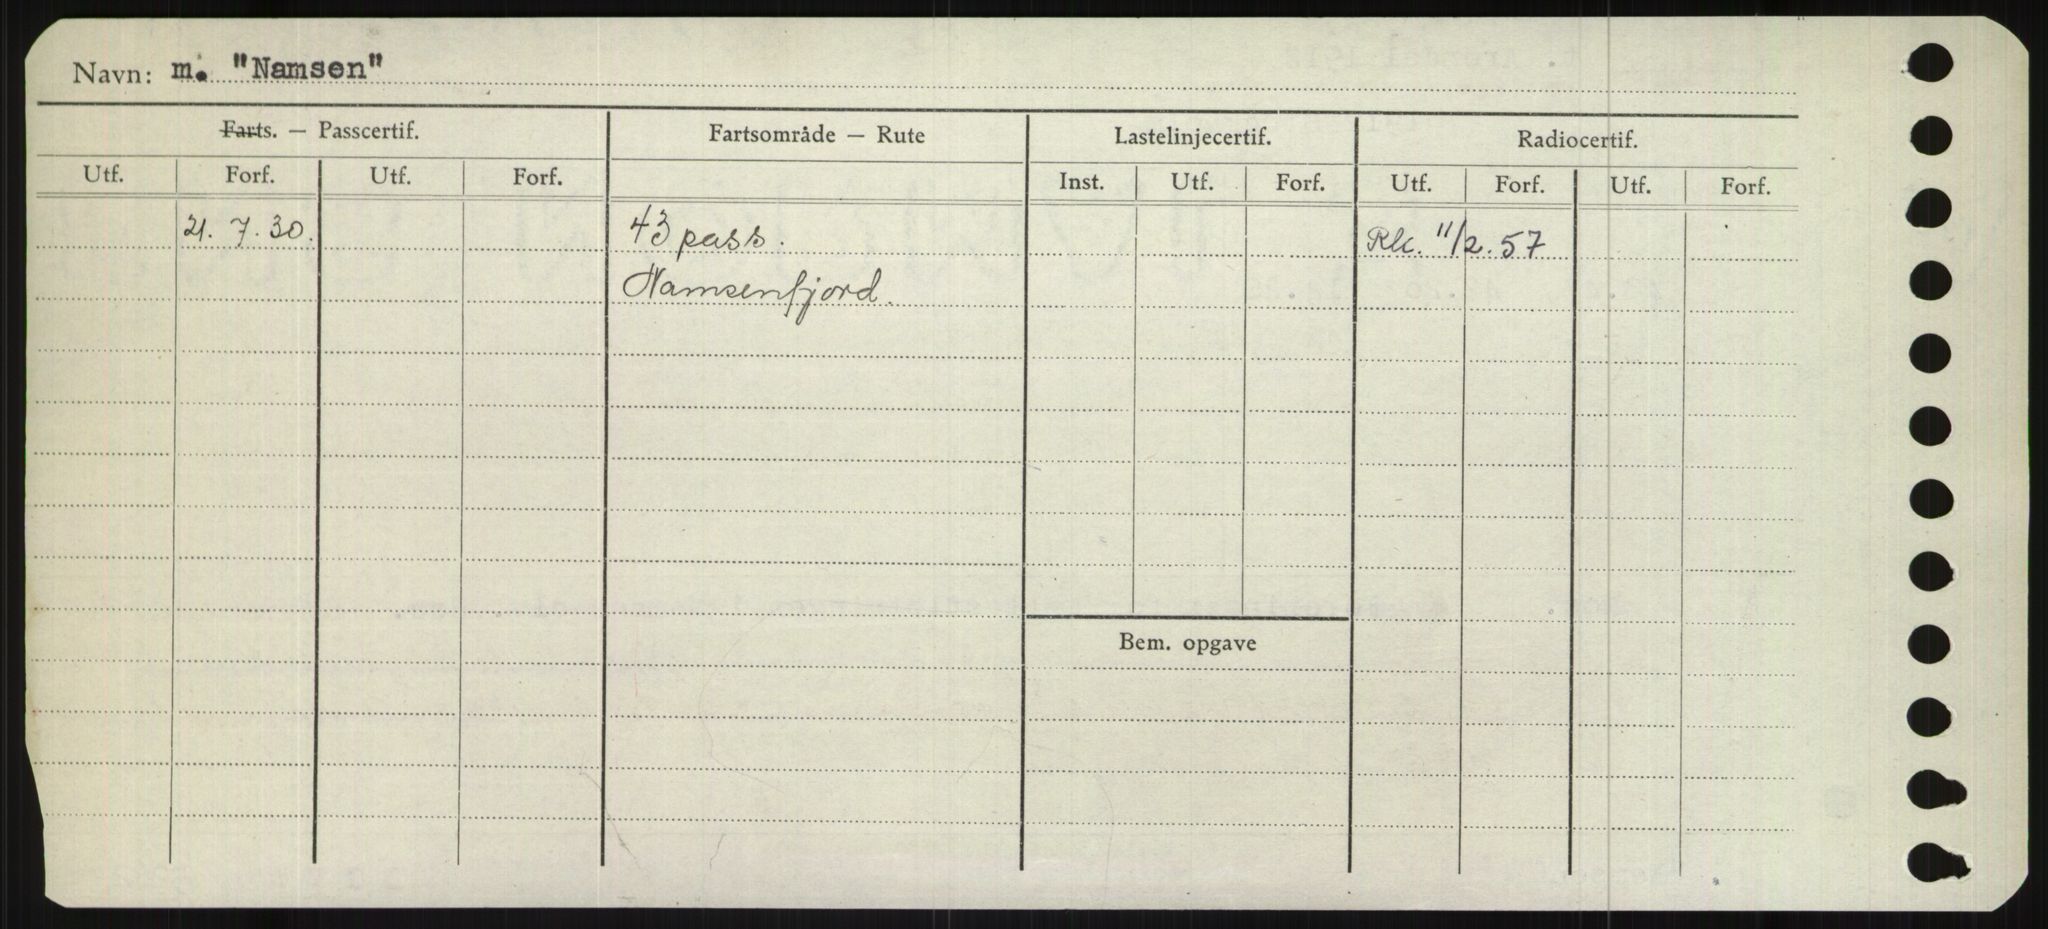 Navn: m. "Namsen"
Farts. — Passcertif. Fartsområde — Rute Lastelinjecertif. Radiocertif.
Utf. Forf. Utf. Forf. Inst. Utf. Forf. Utf. Forf. Utf. Forf.
21. 7. 30. 43 pass. Rk. 11/2. 57
Namsenfjord.
Bem. opgave